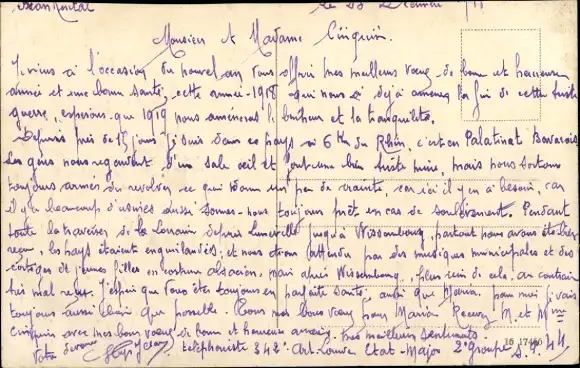 le 28 Décembre 1918
Monsieur et Madame Cinquin.
Je viens à l'occasion du nouvel an vous offrir mes meilleurs vœux de bonne et heureuse
année et une bonne santé, cette année 1918 qui nous a déjà amené la fin de cette triste
guerre, espérons que 1919 nous amènera le bonheur et la tranquilité.
Depuis près de 15 jours je suis dans ce pays à 6 Km du Rhin, c'est en Palatinat Bavarois
Les gens nous regardent d'un sale oeil et font une bien triste mine, mais nous sortons
toujours armés du revolver ce qui donne un peu de crainte, car ici il y en a besoin, car
il y a beaucoup d'usines aussi sommes-nous toujours prêt en cas de soulèvement. Pendant
toute la traversée de la Lorraine depuis Luneville jusqu'à Wissembourg, partout nous avons été bien
reçu, les pays étaient enguirlandés, et nous étions attendu par des musiques municipales et des
cortèges de jeunes filles en costume alsacien, mais après Wissembourg, plus rien de cela, au contraire
très mal reçu. J'espère que vous êtes toujours en parfaite santé ainsi que Maria. pour moi je vais
toujours aussi bien que possible. Tous mes bons vœux pour Maria Recevez M. et Mme
Cinquin avec mes bons vœux de bonne et heureuse année, mes meilleurs sentiments.
Votre dévoué téléphoniste 342e Art. Lourde Etat-Major 2e Groupe S.P. 44